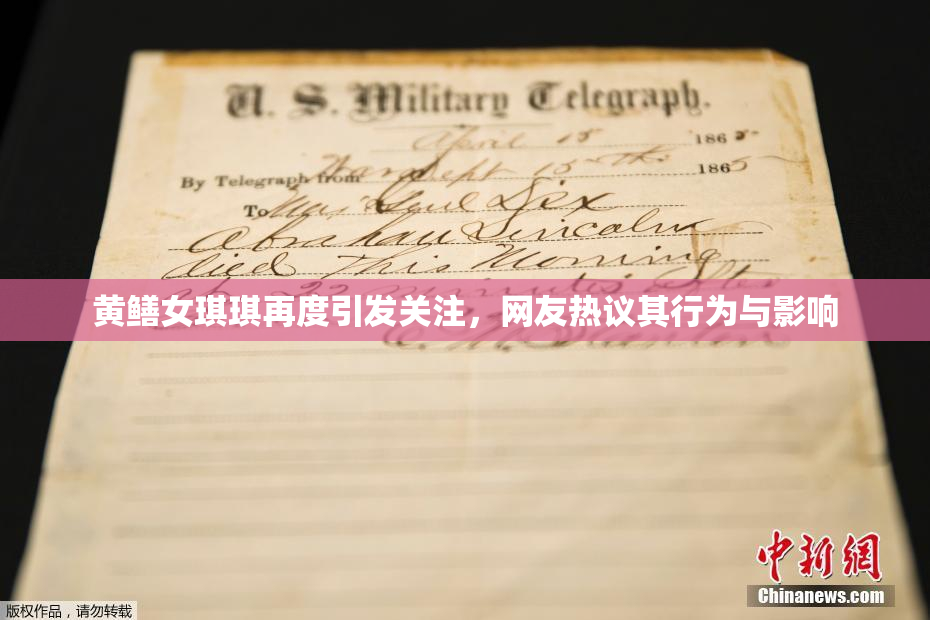 U. S. Military Telegraph.
April 15 1865
By Telegraph from War Dept 15th 1865
To Maj Genl Dix
Abraham Lincoln
died This Morning
at 22 minutes after
黄鳝女琪琪再度引发关注，网友热议其行为与影响
E. M. Stanton
中新网
Chinanews.com
版权作品，请勿转载